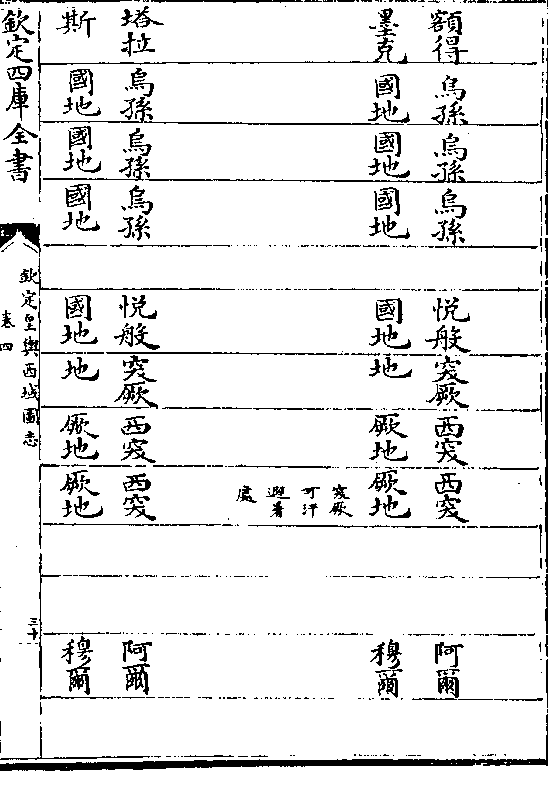 額得 烏孫 烏孫 烏孫 悅般 突厥 西突 西突 阿爾
墨克 國地 國地 國地 國地 地 厥地 厥地 穆爾
突厥
可汗
避暑
處
塔拉 烏孫 烏孫 烏孫 悅般 突厥 西突 西突 阿爾
斯 國地 國地 國地 國地 地 厥地 厥地 穆爾
欽定四庫全書
欽定皇輿西域圖志
卷四
三十